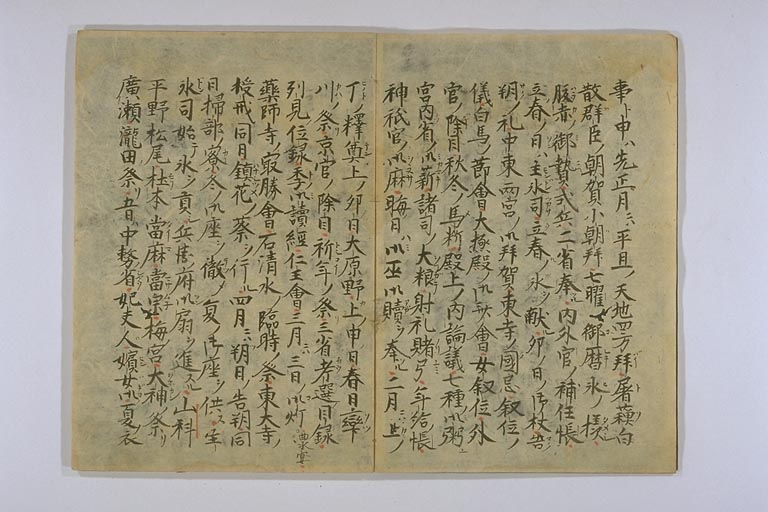 事ト申ハ先正月ニハ平旦ノ天地四方拜屠蘓白
散群臣ノ朝賀小朝拜七曜ノ御暦氷ノ樣
腹赤ノ御贄式兵二省奉ル内外官ノ補任帳
立春ノ日ハ主水司立春ノ水ヲ献ル卯ノ日ノ御杖吾
朔ノ礼中東両宮ノ御拜賀東寺ノ國忌叙位ノ
儀白馬ノ節會大極殿ノ御斎會女叙位外
官ノ除目秋冬ノ馬析殿上ノ内論議七種ノ御粥
宮内省ノ御薪諸司ノ大粮射礼賭弓年給帳
神祇官ノ御麻晦日ハ御巫御贖ヲ奉ル二月ニハ上ノ
丁ノ釋奠上ノ卯日大原野上申日春日率
川ノ祭京官ノ除目祈年ノ祭三省考選目録
列見位録季御讀經仁王會三月三日ノ御灯曲水宴
藥師寺ノ寂勝會石清水ノ臨時ノ祭東大寺ノ
授戒同日鎮花ノ祭ヲ行ル四月ニハ朔日ノ告朔同
日掃部寮冬ノ御座ヲ徹ノ夏ノ御座ヲ供ス主
氷司始テ氷ヲ貢ス兵衛府御扇ヲ進ス山科
平野松尾杜本當麻當宗梅宮大神ノ祭リ
廣瀬瀧田祭リ五日中務省妃夫人嬪女御夏衣